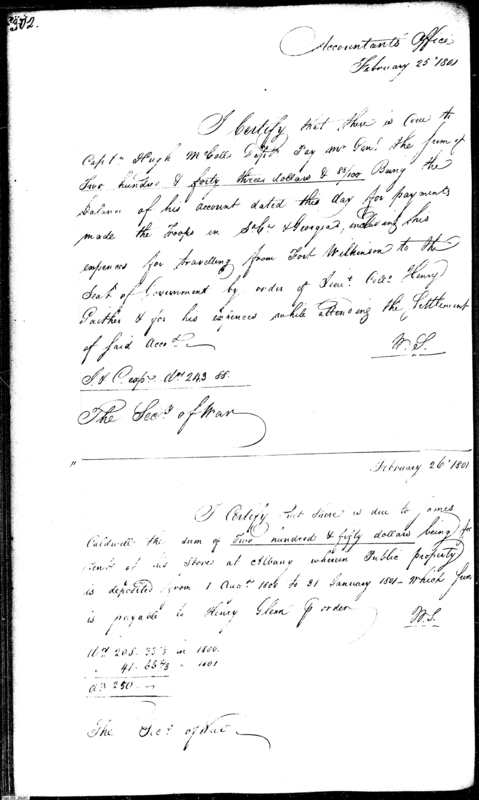 302.
Accountants Office
February 25th 1801
I Certify that there is due to
Capt'n Hugh McCall Dep'ty Pay Mr Gen'l the sum of
Two hundred & forty three dollars & 88/100 Being the
Balance of his account dated this day for payments
made the Troops in So Ca & Georgia, including his
expences for travelling from Fort Wilkinson to the
Seat of Government by order of Lieut Colo Henry
Gaither & for his expences while attending the Settlement
of said Accots
W. S.
Drs 243 88.
The Secy of War
" February 26th 1801
I Certify that there is due to James
Caldwell the sum of Two hundred & fifty dollars being for
Rent of his Store at Albany wherein Public property
is deposited from 1 Augt 1800 to 31 January 1801 - which sum
is payable to Henry Glenn or order
W. S.
Drs 208. 33⅓ in 1800.
" 41. 66⅔ " 1801
Drs 250 -
The Secy of War